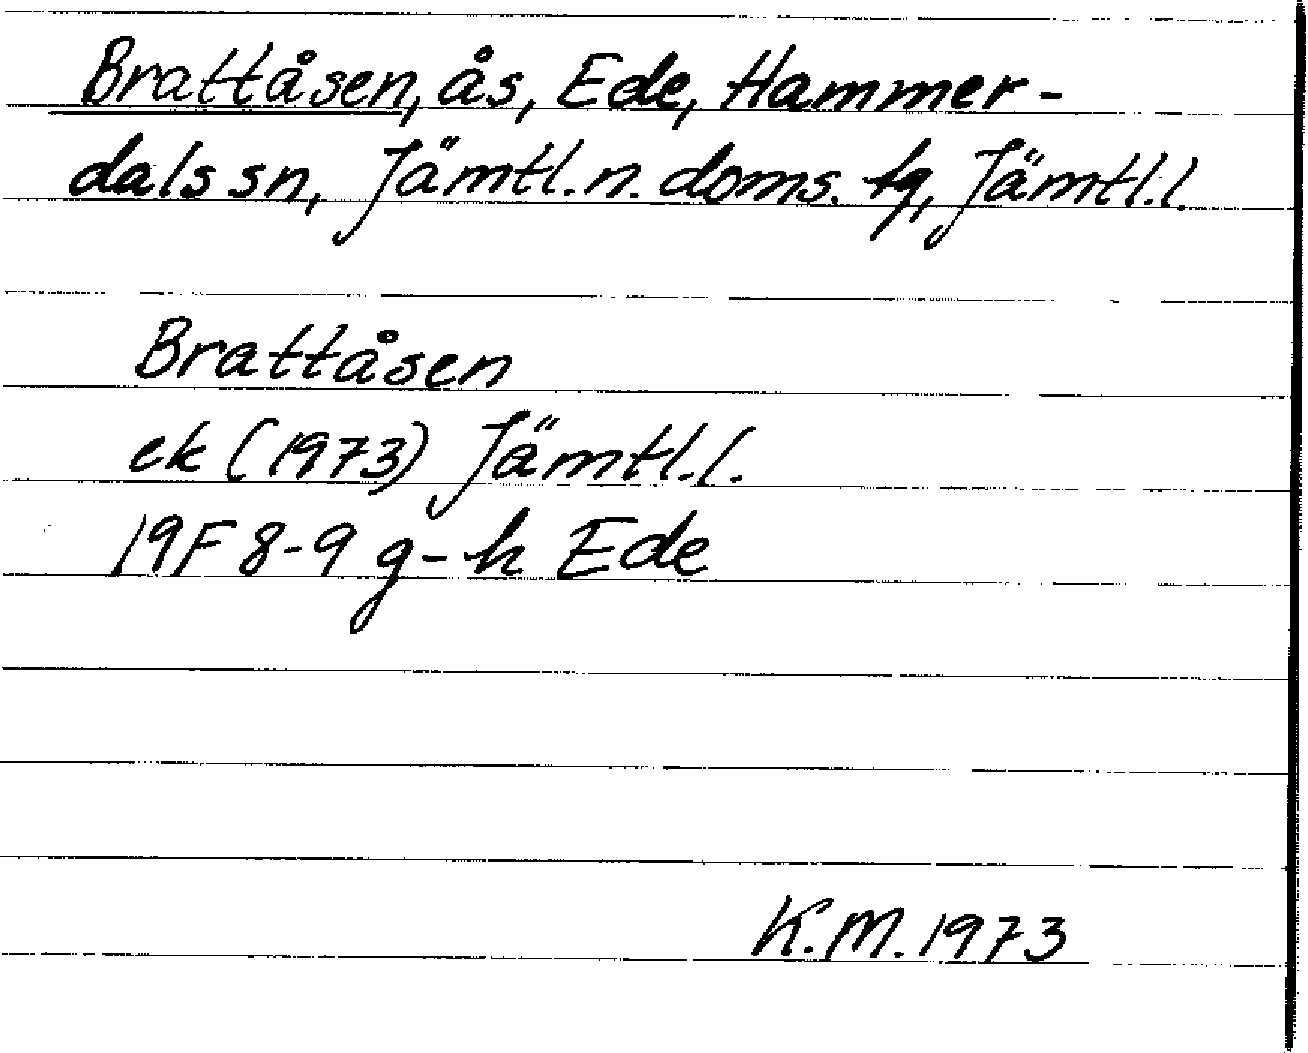 Brattåsen, ås, Ede, Hammer-
dals sn, Jämtl. n. doms. tg, Jämtl. l.
Brattåsen
ek (1973) Jämtl. l.
19F 8-9 g-h Ede
K. M. 1973